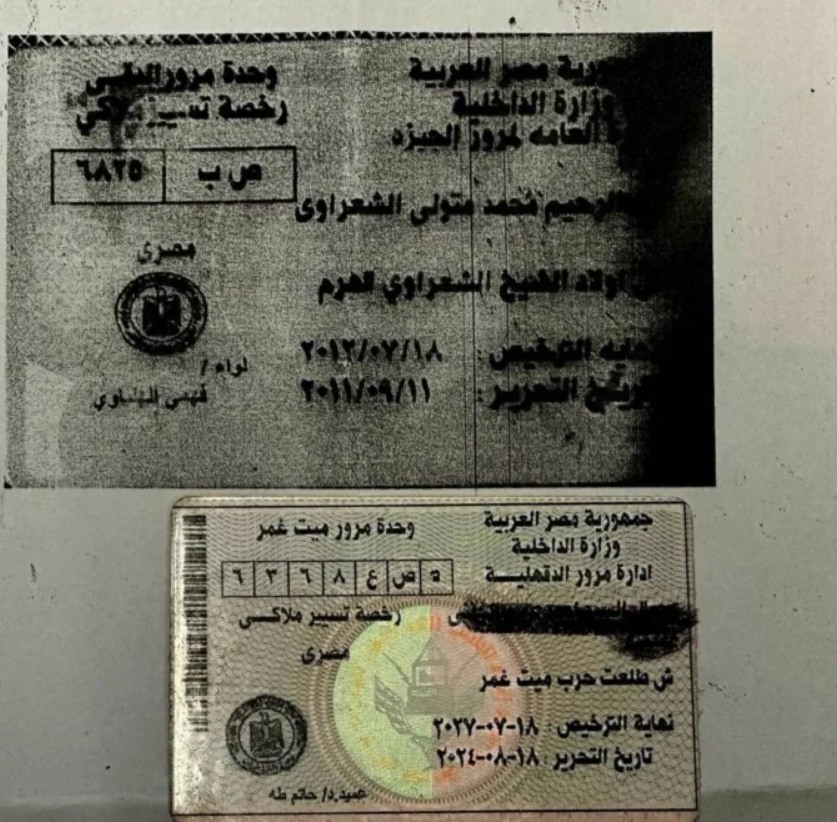 مصر العربية
وزارة الداخلية
العامه لمرور الجيزه
وحدة مرور الدقى
رخصة تسيير ملاكي
ص ب ٦٨٢٥
محمد متولى الشعراوى
اولاد الشيخ الشعراوي الهرم
مصرى
نهايه الترخيص : ٢٠١٢/٠٧/١٨
تاريخ التحرير : ٢٠١١/٠٩/١١
لواء /
فهمى
جمهورية مصر العربية
وزارة الداخلية
ادارة مرور الدقهلية
وحدة مرور ميت غمر
ه ص ع ٦٣٦٨
رخصة تسيير ملاكى
مصرى
ش طلعت حرب ميت غمر
نهاية الترخيص : ١٨-٠٧-٢٠٢٧
تاريخ التحرير : ١٨-٠٨-٢٠٢٤
عميد.د/ حاتم طه